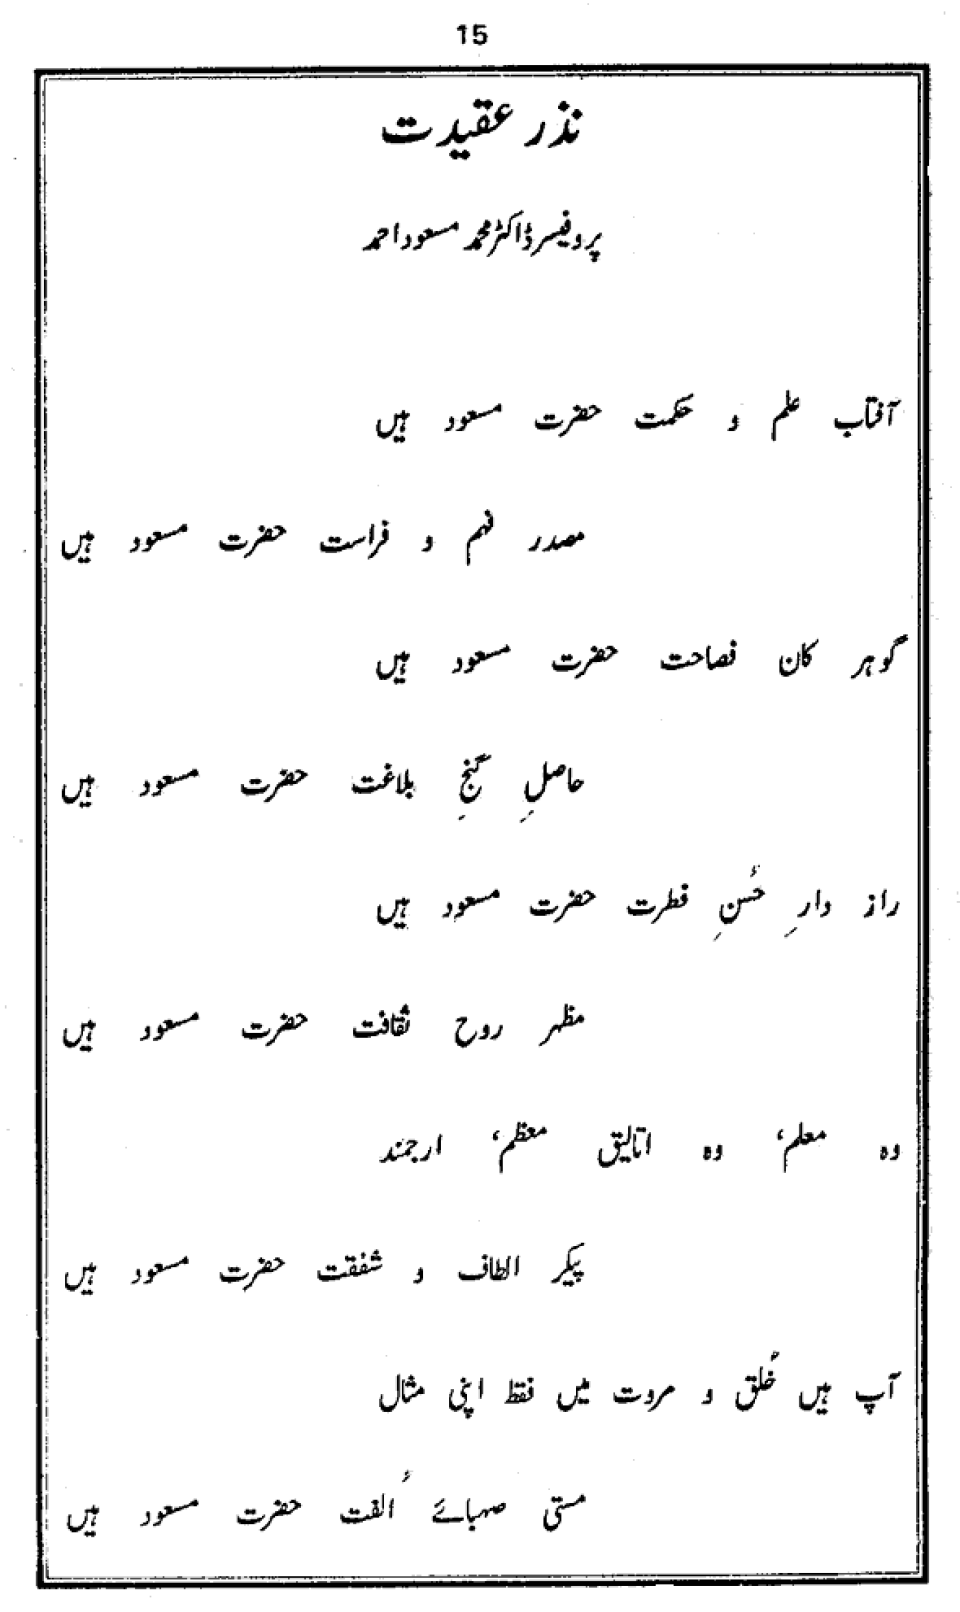 15
نذر عقیدت
پروفیسر ڈاکٹر محمد مسعود احمد
آفتاب علم و حکمت حضرت مسعود ہیں
مصدر فہم و فراست حضرت مسعود ہیں
گوہر کان فصاحت حضرت مسعود ہیں
حاصلِ گنجِ بلاغت حضرت مسعود ہیں
راز دارِ حُسنِ فطرت حضرت مسعود ہیں
مظہر روح ثقافت حضرت مسعود ہیں
وہ معلم، وہ اتالیق معظم، ارجمند
پیکر الطاف و شفقت حضرت مسعود ہیں
آپ ہیں خُلق و مروت میں فقط اپنی مثال
مستی صہبائے اُلفت حضرت مسعود ہیں